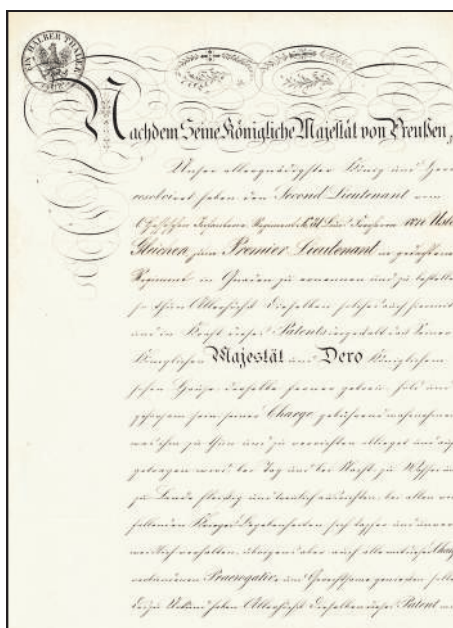 EIN HALBER THALER
Nachdem Seine Königliche Majestät von Preußen,
Unser allergnädigster König und Herr
resolviret haben den Second Lieutenant vom
Infanterie Regiment Freiherrn von
Gleichen zum Premier Lieutenant
Regiment in Gnaden zu ernennen und zu bestellen
so thun Allerhöchst Dieselben solches auch hiermit
und in Kraft dieses Patents
Königlichen Majestät und Dero Königlichem
Hause derselbe ferner getreu, hold und
gehorsam sein seiner Charge gebührend wahrnehmen
was ihm zu thun und zu verrichten oblieget und
getragen wird bei Tag und bei Nacht, zu Wasser und
zu Lande fleißig und treulich ausrichten, bei allen vor
fallenden Krieges Begebenheiten sich tapfer und
verhalten, übrigens aber auch alle mit dieser
verbundenen Praerogative und Gerechtsame genießen solle
Allerhöchst Dieselben dieses Patent